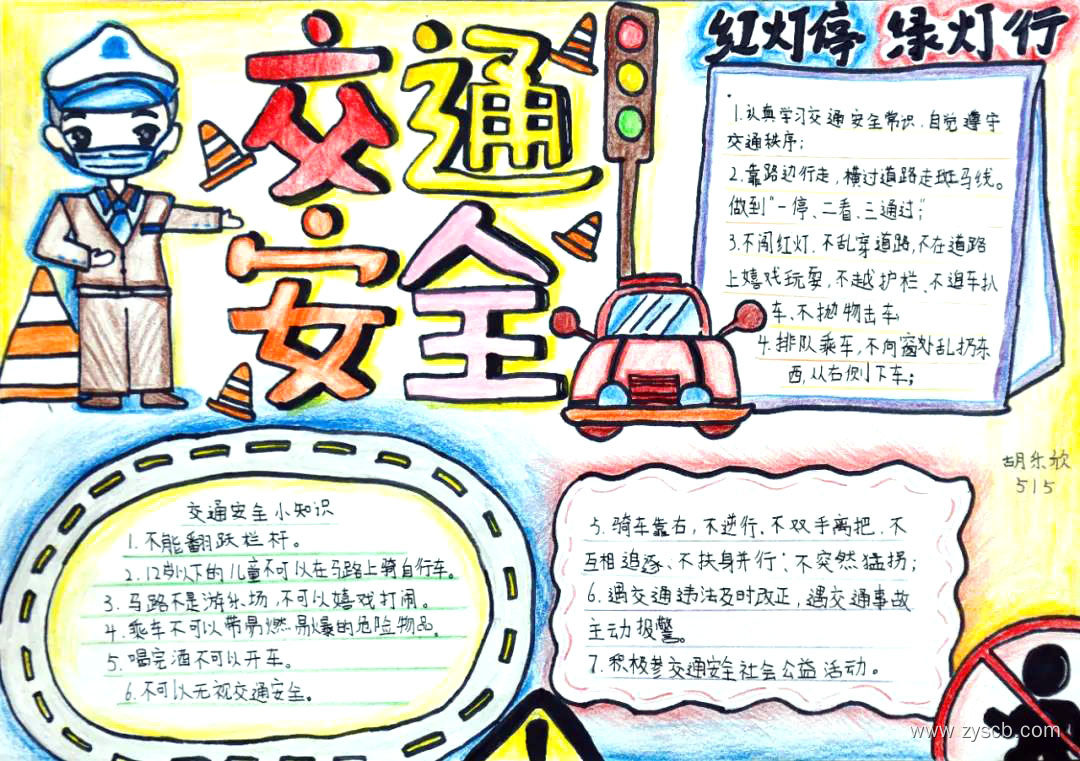 交通
安全
红灯停 绿灯行
1.认真学习交通安全常识、自觉遵守
交通秩序;
2.靠路边行走,横过道路走斑马线。
做到“一停、二看、三通过”;
3.不闯红灯、不乱穿道路,不在道路
上嬉戏玩耍,不越护栏、不追车扒
车、不抛物击车;
4.排队乘车,不向窗处乱扔东
西,从右侧下车;
胡乐欣
515
交通安全小知识
1.不能翻跃栏杆。
2.12岁以下的儿童不可以在马路上骑自行车。
3.马路不是游乐场,不可以嬉戏打闹。
4.乘车不可以带易燃易爆的危险物品。
5.喝完酒不可以开车。
6.不可以无视交通安全。
5.骑车靠右,不逆行、不双手离把、不
互相追逐、不扶身并行;不突然猛拐;
6.遇交通违法及时改正,遇交通事故
主动报警。
7.积极参交通安全社会公益活动。
www.zyscb.com